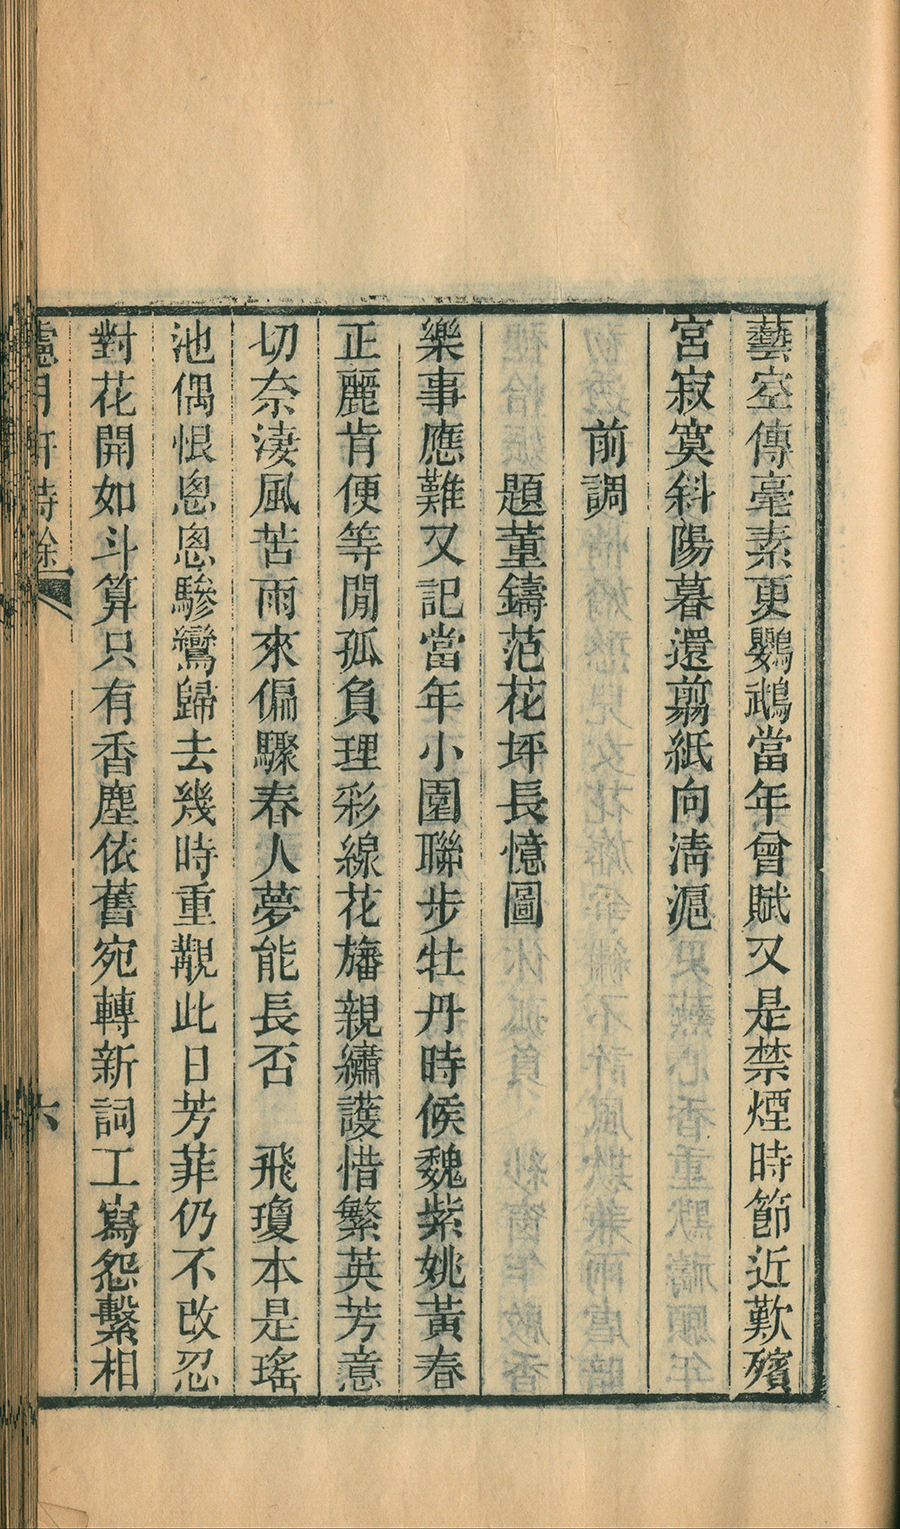 藝空傳毫素更鸚鵡當年曾賦又是禁煙時節近歎殯
宮寂寞斜陽暮還剪紙向淸滬
前調
題董鑄范花坪長憶圖
樂事應難又記當年小園聯步牡丹時候魏紫姚黃春
正麗肯便等閒孤負理彩線花旛親繡護惜繁英芳意
切奈淒風苦雨來偏驟春人夢能長否　飛瓊本是瑤
池偶恨悤悤驂鸞歸去幾時重覯此日芳菲仍不改忍
對花開如斗算只有香塵依舊宛轉新詞工寫怨繫相
月軒詩餘
六